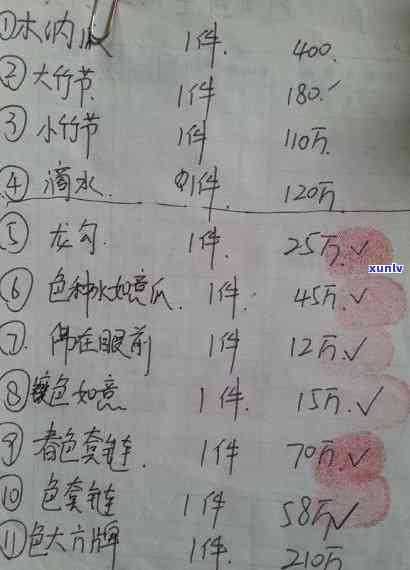 ① 木内 1件. 400.
② 大竹节 1件 180.
③ 小竹节 1件 110万.
④ 滴水. 1件. 120万.
⑤ 龙勾. 1件. 25万.✓
⑥ 色种水如意瓜. 1件. 45万.✓
⑦. 佛在眼前 1件 12万✓
⑧ 色如意 1件. 15万.✓
⑨ 春色套链. 1件 70万.✓
⑩ 色套链 1件 58万✓
⑪ 色大方牌 1件. 210万
xunlv